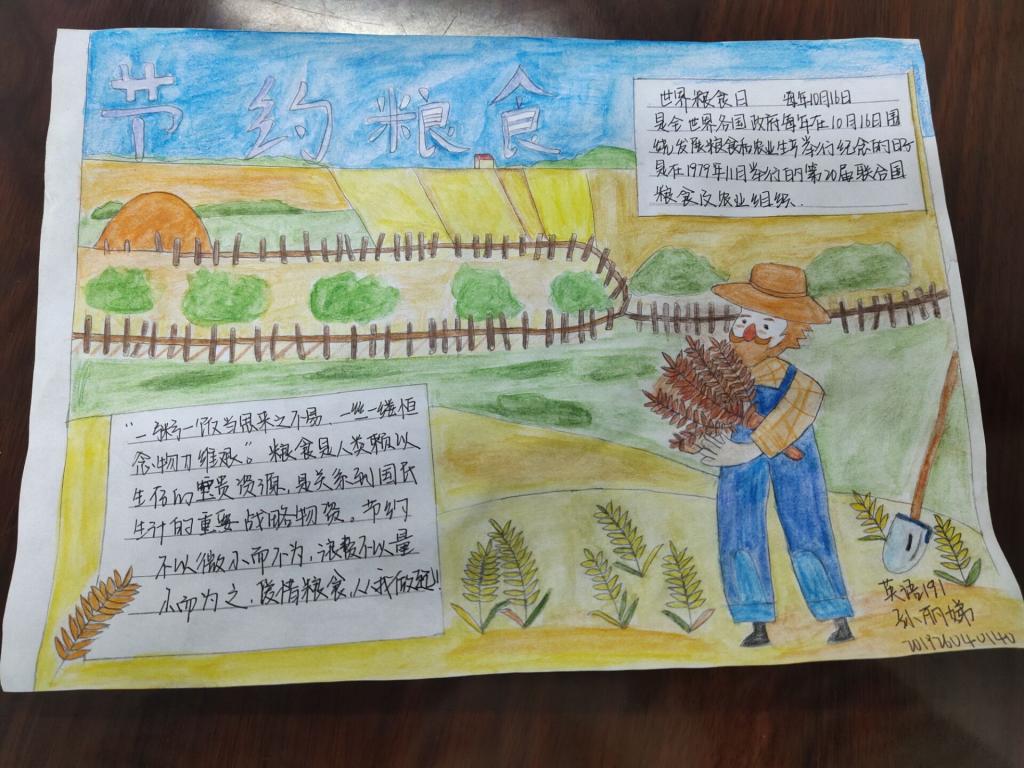 节约粮食
世界粮食日 每年10月16日
是全世界各国政府每年在10月16日围
绕发展粮食和农业生产举行纪念的日子
是在1979年11月举行的第20届联合国
粮食及农业组织.
“一粥一饭当思来之不易,一丝一缕恒
念物力维艰”。粮食是人类赖以
生存的重要资源,是关系到国民
生计的重要战略物资。节约
不以微小而不为,浪费不以量
小而为之,爱惜粮食,从我做起!
英语191
孙丽娣